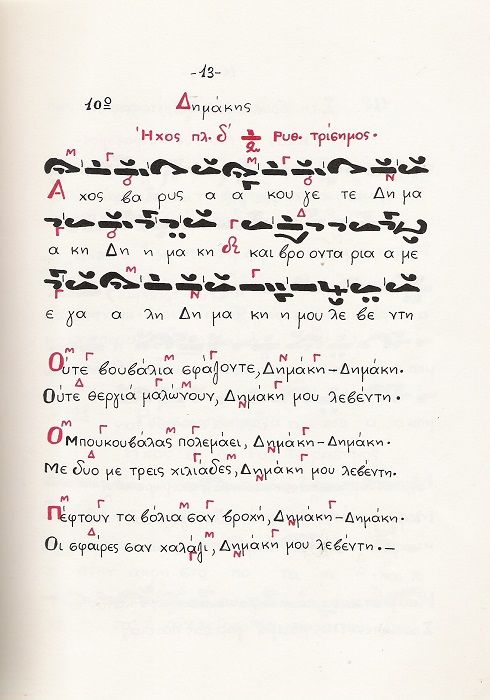 -13-
10º Δημάκης
Ήχος πλ. δ' Ρυθ. τρίσημος.
Α χος βα ρυς α α κου γε τε Δη μα
α κη Δη η μα κη και βρο οντα ρια α με
ε γα α λη Δη μα κη η μου λε βε ντη
Ούτε βουβάλια σφάζοντε, Δημάκη-Δημάκη.
Ούτε θεργιά μαλώνουν, Δημάκη μου λεβέντη.
Ο Μπουκουβάλας πολεμάει, Δημάκη-Δημάκη.
Με δυο με τρεις χιλιάδες, Δημάκη μου λεβέντη.
Πέφτουν τα βόλια σαν βροχή, Δημάκη-Δημάκη.
Οι σφαίρες σαν χαλάζι, Δημάκη μου λεβέντη.-